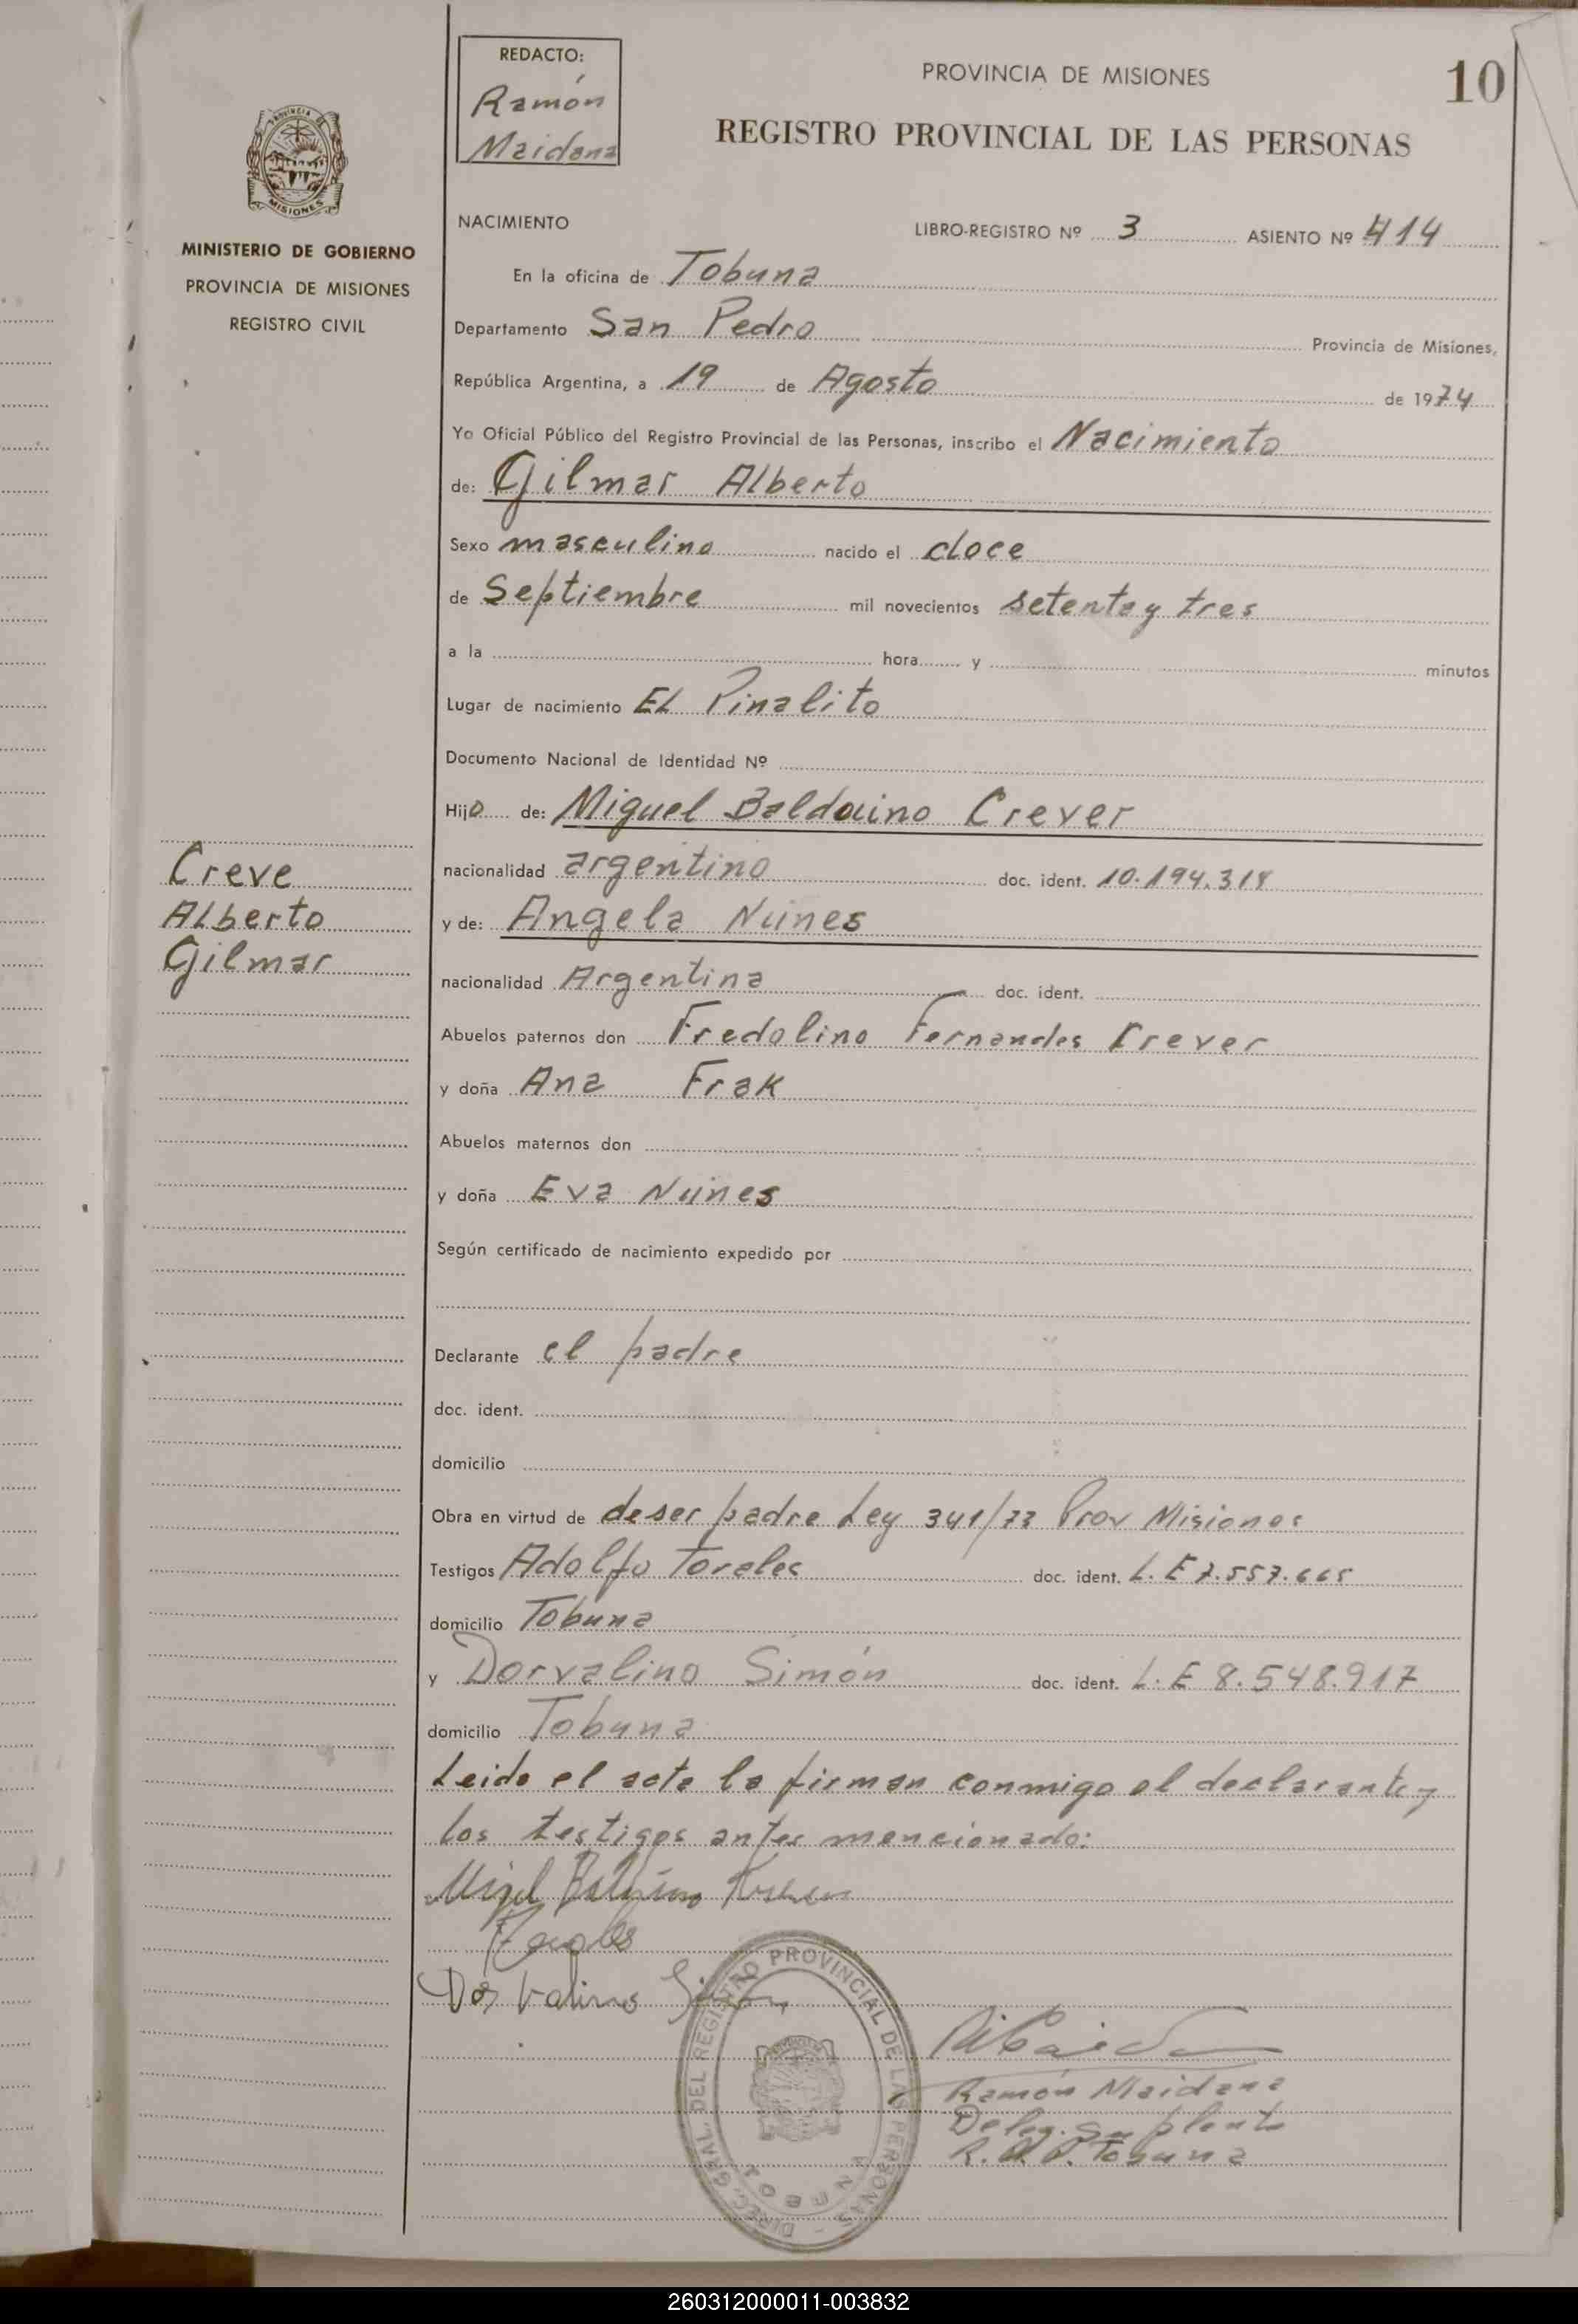 REDACTO:
Ramón
Maidana
PROVINCIA DE MISIONES
10
REGISTRO PROVINCIAL DE LAS PERSONAS
PROVINCIA DE
MISIONES
MINISTERIO DE GOBIERNO
PROVINCIA DE MISIONES
REGISTRO CIVIL
NACIMIENTO
LIBRO-REGISTRO Nº 3 ASIENTO Nº 414
En la oficina de Tobuna
Departamento San Pedro Provincia de Misiones,
República Argentina, a 19 de Agosto de 1974
Yo Oficial Público del Registro Provincial de las Personas, inscribo el Nacimiento
de: Gilmar Alberto
Sexo masculino nacido el doce
de Septiembre mil novecientos setenta y tres
a la hora y minutos
Lugar de nacimiento EL Pinalito
Documento Nacional de Identidad Nº
Hijo de: Miguel Baldouino Crever
nacionalidad argentino doc. ident. 10.194.318
y de: Angela Nunes
nacionalidad Argentina doc. ident.
Abuelos paternos don Fredolino Fernandes Crever
y doña Ana Frak
Abuelos maternos don
y doña Eva Nunes
Según certificado de nacimiento expedido por
Declarante el padre
doc. ident.
domicilio
Obra en virtud de deser padre Ley 341/73 Prov Misiones
Testigos Adolfo Torales doc. ident. L.E 7.557.665
domicilio Tobuna
y Dorvalino Simón doc. ident. L.E 8.548.917
domicilio Tobuna
Leido el acta la firman conmigo el declarante y
los testigos antes mencionado:
Creve
Alberto
Gilmar
Dorvalino Simon
DIREC. GRAL. DEL REGISTRO PROVINCIAL DE LAS PERSONAS
Ramón Maidana
Deleg. Suplente
R. P. P. Tobuna
260312000011-003832